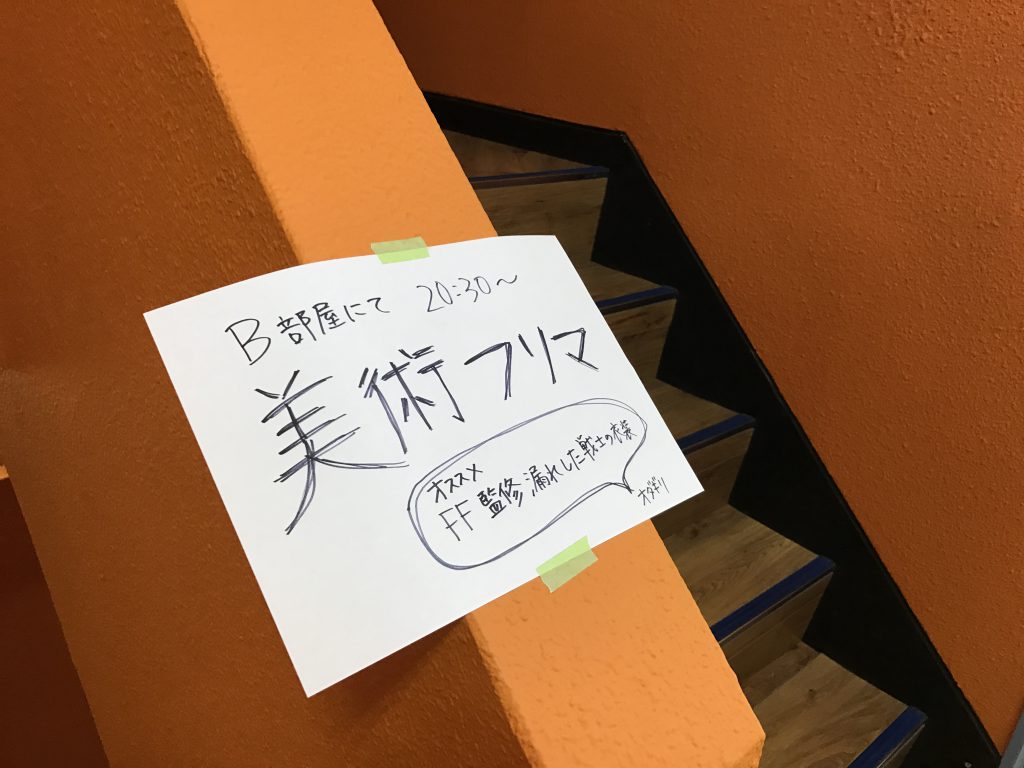 B部屋にて 20:30〜
美術フリマ
オススメ
FF監修漏れした戦士の衣装
オダギリ